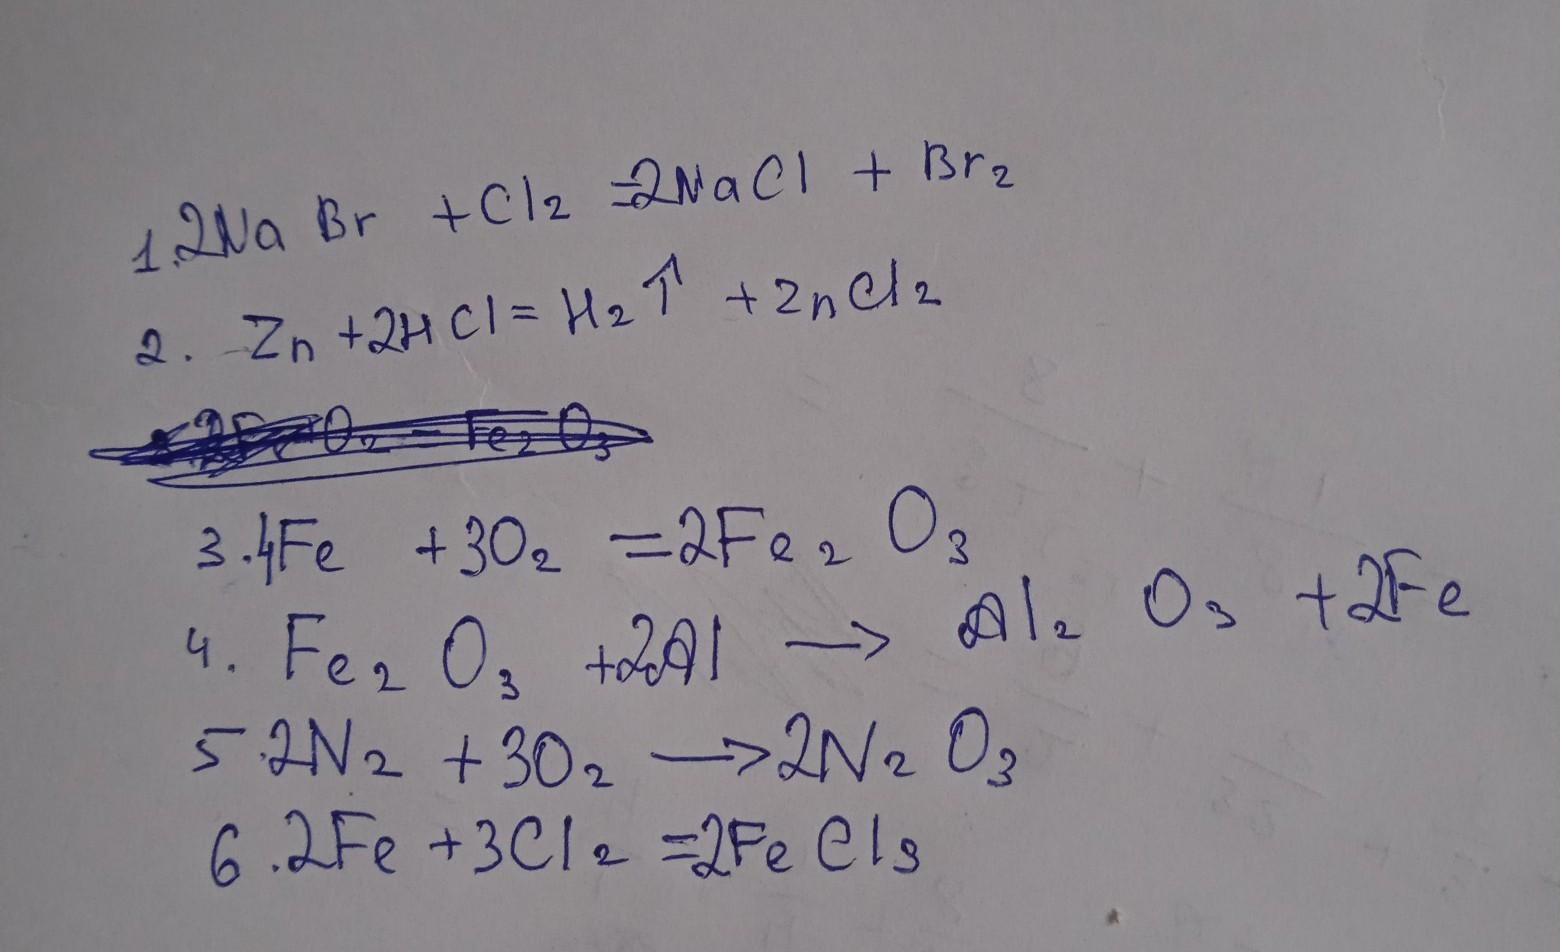 1.2NaBr + Cl₂ = 2NaCl + Br₂
2. Zn + 2HCl = H₂↑ + ZnCl₂
O₂ = Fe₂O₃
3.4Fe + 3O₂ = 2Fe₂O₃
4. Fe₂O₃ + 2Al → Al₂O₃ + 2Fe
5.2N₂ + 3O₂ → 2N₂O₃
6.2Fe + 3Cl₂ = 2FeCl₃